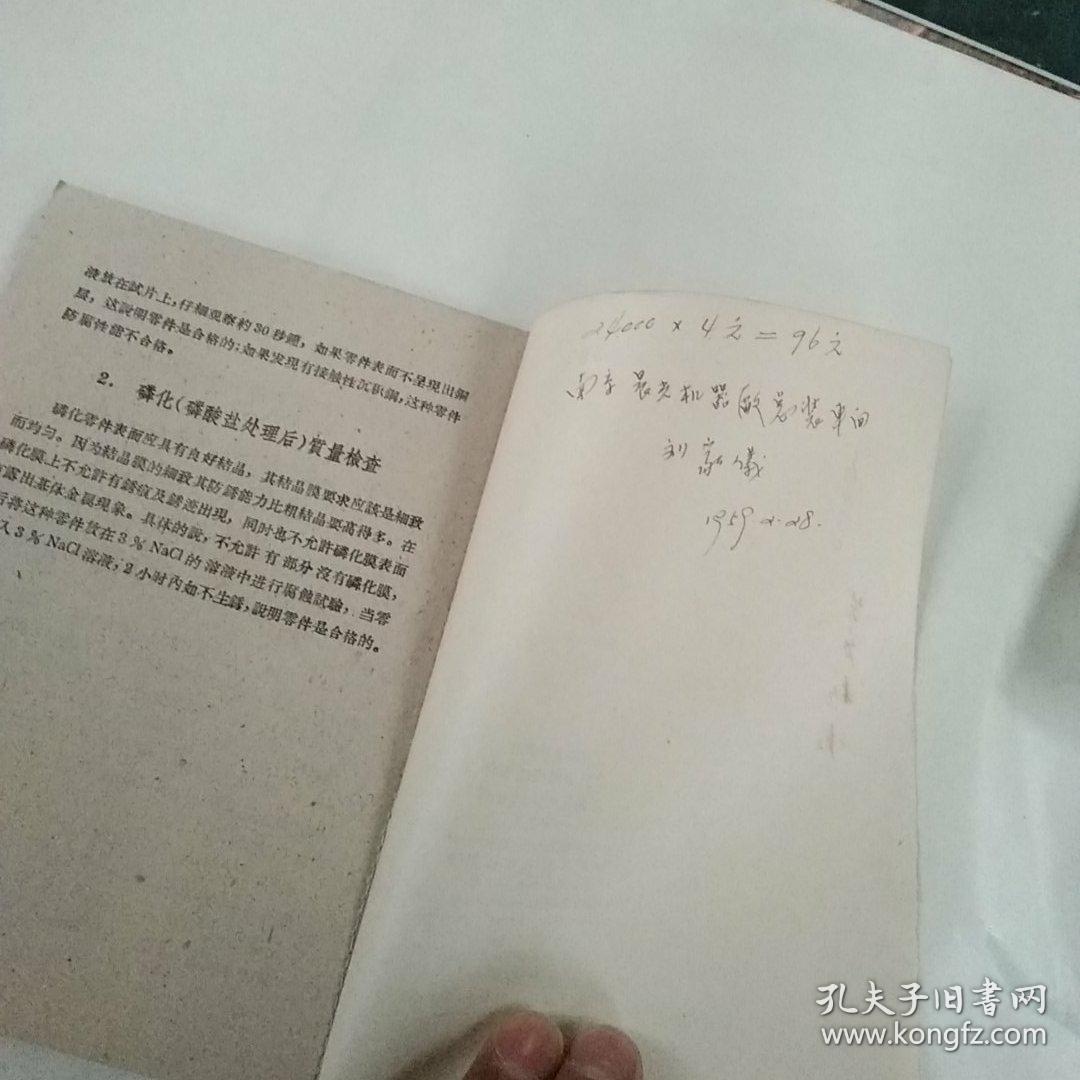 液放在試片上,仔細观察約30秒鐘,如果零件表面不呈現出銅
层,这說明零件是合格的;如果发现有接触性沉积銅,这种零件
防腐性能不合格。
2. 磷化(磷酸盐处理后)質量檢查
磷化零件表面应具有良好結晶,其結晶膜要求应該是細致
而均匀。因为結晶膜的細致其防銹能力比粗結晶要高得多。在
磷化膜上不允許有銹痕及銹迹出现,同时也不允許磷化膜表面
露出基体金属現象。具体的說,不允許有部分沒有磷化膜,
后将这种零件放在3%NaCl的溶液中进行腐蝕試驗,当零
入3%NaCl溶液,2小时內如不生銹,說明零件是合格的。
24000 × 4元 = 96元
南京晨光机器厰总装車间
刘 儀
1959.2.28.
孔夫子旧書网
www.kongfz.com